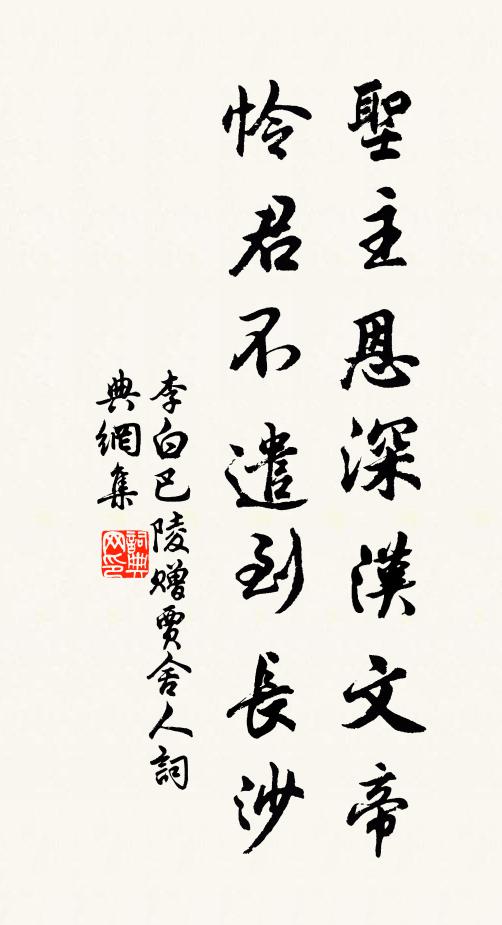 聖主恩深漢文帝
憐君不遣到長沙
李白巴陵贈賈舍人詞
典網集
詞典
网印